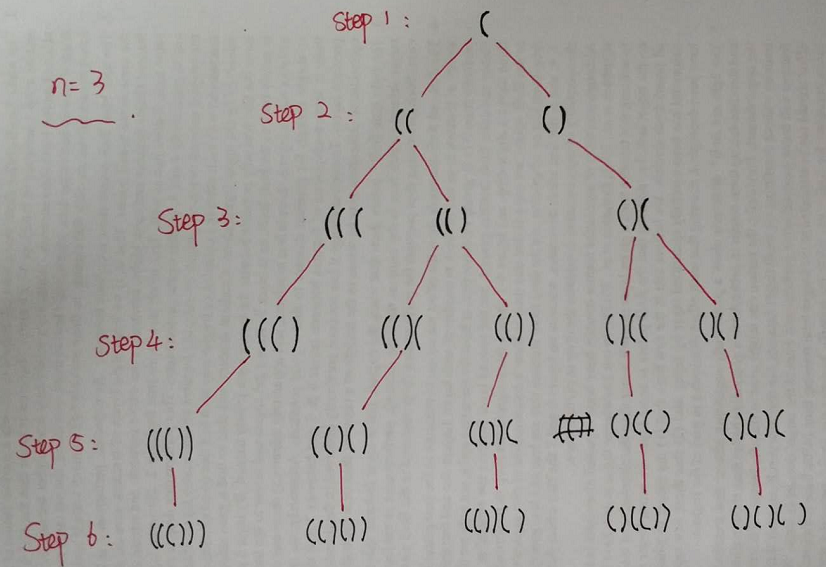 Step 1: (
n=3
Step 2: (( ()
Step 3: ((( (() ()(
Step 4: ((() (()( (()) ()(( ()()
Step 5: ((()) (()() (())( ()(() ()()(
Step 6: ((())) (()()) (())() ()(()) ()()()